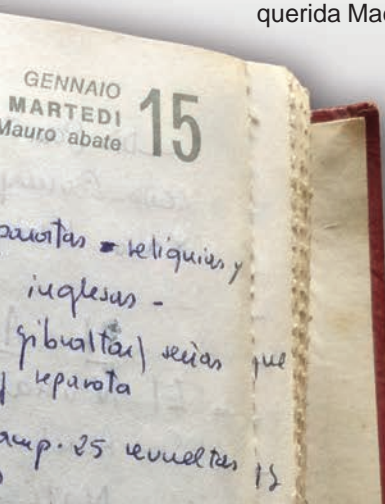 querida Mad
GENNAIO
MARTEDI 15
Mauro abate
reliquias y
inglesas -
gibraltar) serias que
reparota
25 revueltas